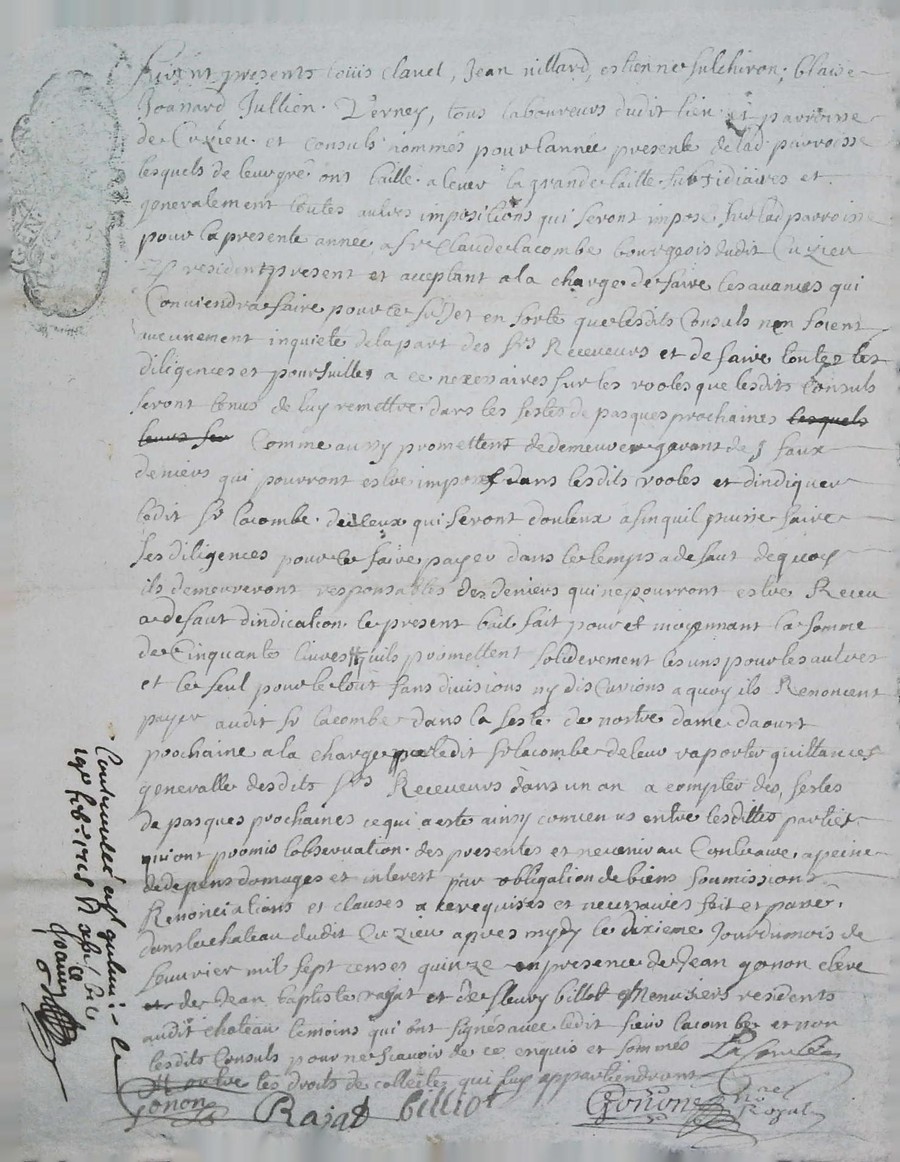 furent presents Loüis Clavel, Jean Villard, estienne sulchiron, blaise
Joanard Jullien Verney, tous laboureurs dudit lieu et parroisse
de Cuzieu et Consuls nommés pour lannée presente delad parroisse
lesquels de leur gré ont baillé a lever la grande taille subsidiaires et
generalement toutes autres impositions qui seront imposé sur lad parroisse
pour la presente année a sr Claude lacombe bourgeois dudit Cuzieu
y resident present et acceptant a la charge de faire les avances qui
Conviendra faire pour ce sujet en sorte que lesdits Consuls non soient
aucunement inquieté de la part des srs Receveurs et de faire toutes les
diligences et poursuittes a ce necessaires sur les rooles que lesdits Consuls
seront tenus de luy remettre dans les festes de pasques prochaines lesquels
leurs Comme aussy promettent de demeurer garant des faux
deniers qui pourront estre imposé dans lesdits rooles et dindiquer
ledit sr lacombe de ceux qui seront douteux afin quil puisse faire
ses diligences pour le faire payer dans le temps a defaut de quoy
ils demeureront responsables des deniers qui ne pourront estre Receu
a defaut dindication. le present bail fait pour et moyennant la somme
de Cinquantes livres quils promettent soliderement les uns pour les autres
et le seul pour le tout sans divisions ny discussions a quoy ils Renoncent
payer audit sr lacombe dans la feste de nostre dame daoust
prochaine a la charge par ledit sr lacombe de leur raporter quittances
generalle desdits srs Receveurs dans un an a compter des festes
de pasques prochaines ce qui a esté ainsy convenus entre lesdittes parties
qui ont promis lobservation des presentes et ne venir au Contraire, a peine
de depens domages et interest par obligation de biens soumissions
Renonciations et clauses a ce requises et necessaires fait et passé,
dans le chateau dudit Cuzieu apres mydy le dixieme Jour du mois de
feuvrier mil sept censes quinze en presence de Jean gonon clerc
de Jean baptiste rajat et de fleury billot Menusiers residents
audit chateau temoins qui ont signés avec ledit sieur lacombe et non
lesdits Consuls pour ne scavoir de ce enquis et sommés LaCombe
outre les droits de collecte qui luy appartiendront
gonon Rajat billiot Gonon nore Royal
Controllé
feb. 1715